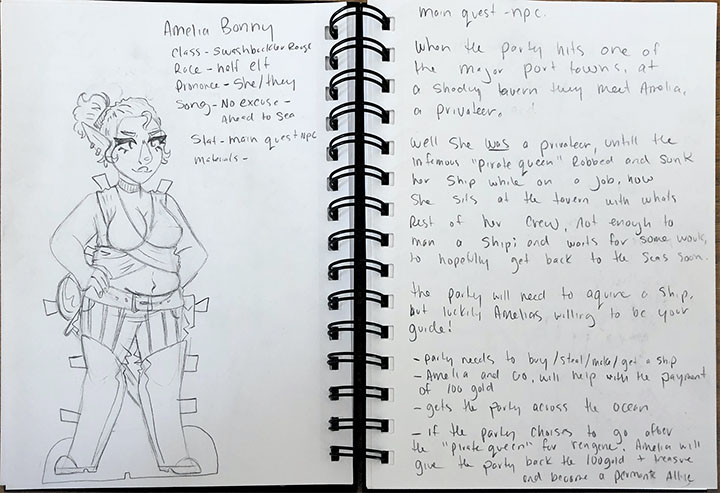 Amelia Bonny
Class - Swashbuckler Rouge
Race - half elf
Pronouns - She/they
Song - No excuse -
Ahead to Sea
Stat - main quest NPC
Materials -
main quest - npc.
When the party hits one of
the major port towns, at
a shoddy tavern they meet Amelia,
a privateer.
Well She was a privateer, untill the
infamous "pirate queen" Robbed and sunk
her Ship while on a job, now
She sits at the tavern with whats
Rest of her crew, not enough to
man a ship; and waits for some work,
to hopefully get back to the seas soon.
the party will need to aquire a ship,
but luckily Amelias willing to be your
guide!
- party needs to buy/steal/make/get a ship
- Amelia and co, will help with the payment
of 100 gold
- gets the party across the ocean
- if the party choises to go after
the "pirate queen" for rengene, Amelia will
give the party back the 100gold + treasure
and become a permante Allie